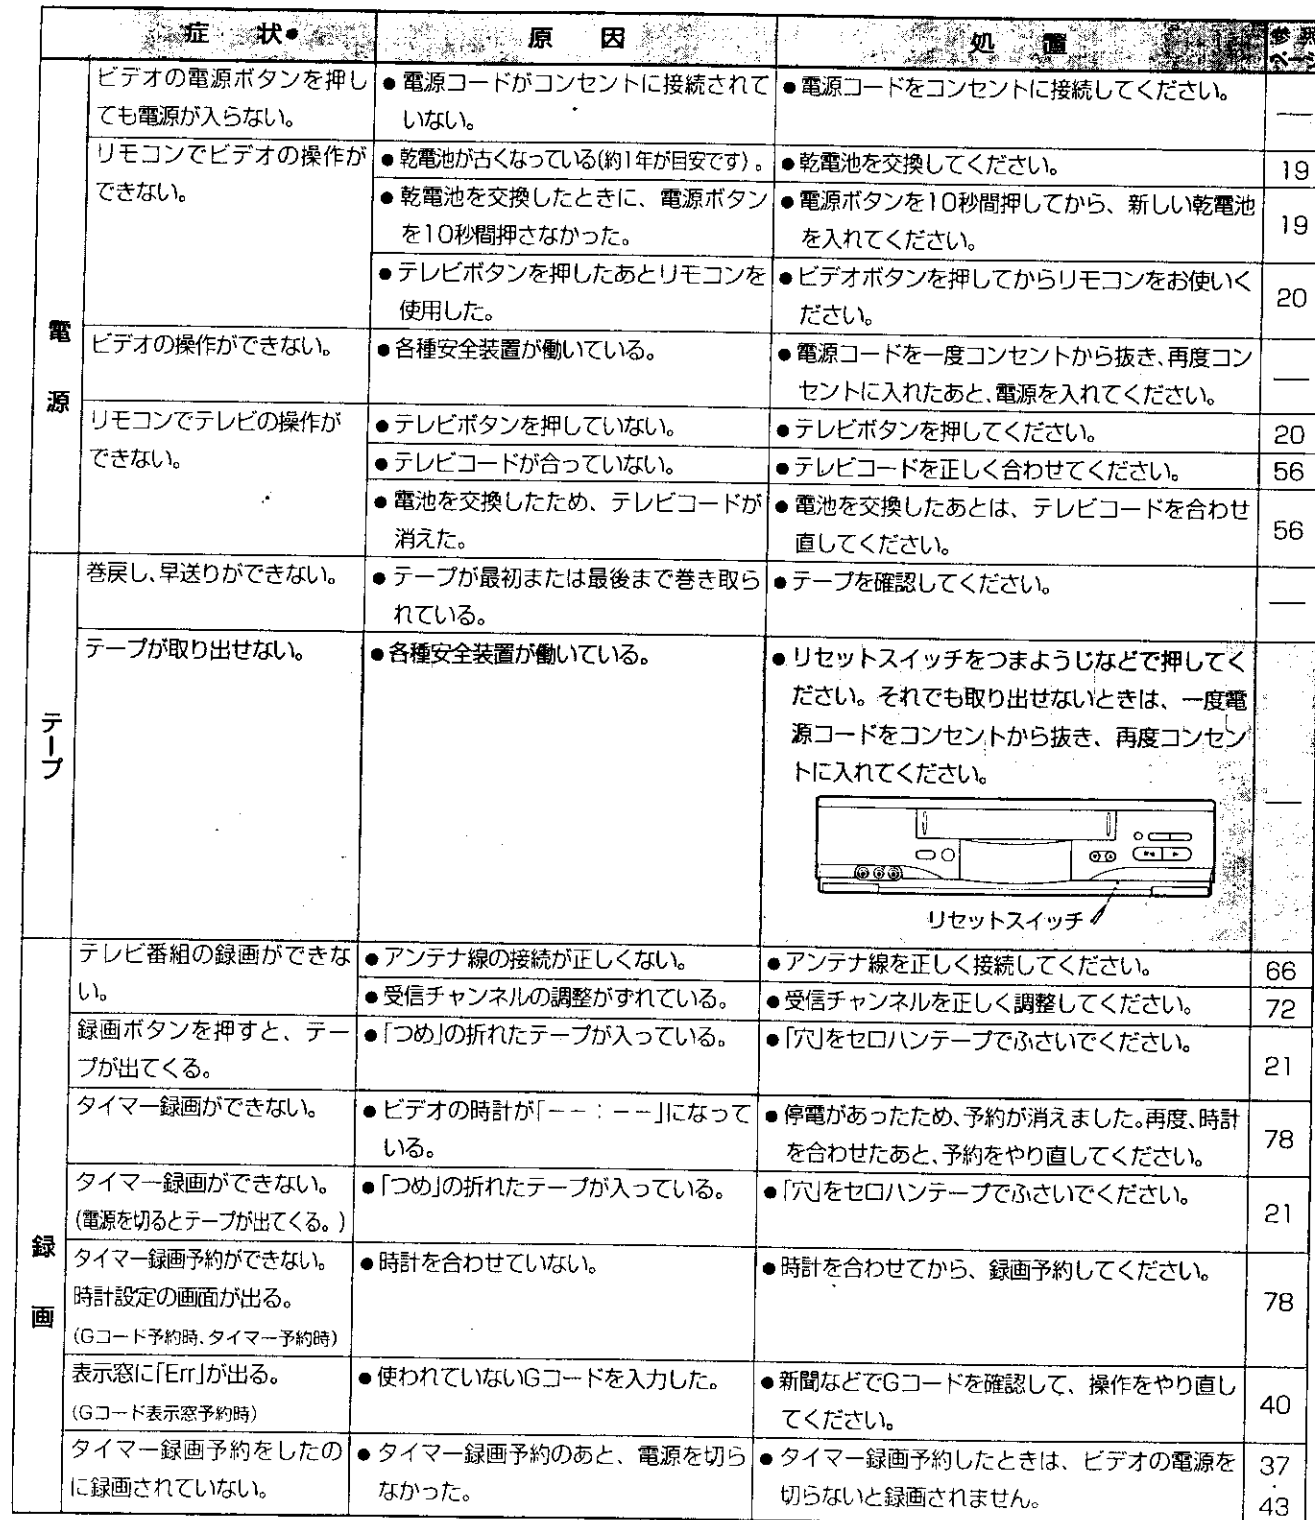 症状● 原因 処置 参照ページ
電源
ビデオの電源ボタンを押し
ても電源が入らない。
●電源コードがコンセントに接続されて
いない。
●電源コードをコンセントに接続してください。
―
リモコンでビデオの操作が
できない。
●乾電池が古くなっている(約1年が目安です)。
●乾電池を交換してください。
19
●乾電池を交換したときに、電源ボタン
を10秒間押さなかった。
●電源ボタンを10秒間押してから、新しい乾電池
を入れてください。
19
●テレビボタンを押したあとリモコンを
使用した。
●ビデオボタンを押してからリモコンをお使いく
ださい。
20
ビデオの操作ができない。
●各種安全装置が働いている。
●電源コードを一度コンセントから抜き、再度コン
セントに入れたあと、電源を入れてください。
―
リモコンでテレビの操作が
できない。
●テレビボタンを押していない。
●テレビボタンを押してください。
20
●テレビコードが合っていない。
●テレビコードを正しく合わせてください。
56
●電池を交換したため、テレビコードが
消えた。
●電池を交換したあとは、テレビコードを合わせ
直してください。
56
テープ
巻戻し、早送りができない。
●テープが最初または最後まで巻き取ら
れている。
●テープを確認してください。
―
テープが取り出せない。
●各種安全装置が働いている。
●リセットスイッチをつまようじなどで押してく
ださい。それでも取り出せないときは、一度電
源コードをコンセントから抜き、再度コンセン
トに入れてください。
リセットスイッチ
―
録画
テレビ番組の録画ができな
い。
●アンテナ線の接続が正しくない。
●アンテナ線を正しく接続してください。
66
●受信チャンネルの調整がずれている。
●受信チャンネルを正しく調整してください。
72
録画ボタンを押すと、テー
プが出てくる。
●「つめ」の折れたテープが入っている。
●「穴」をセロハンテープでふさいでください。
21
タイマー録画ができない。
●ビデオの時計が「――:――」になって
いる。
●停電があったため、予約が消えました。再度、時計
を合わせたあと、予約をやり直してください。
78
タイマー録画ができない。
(電源を切るとテープが出てくる。)
●「つめ」の折れたテープが入っている。
●「穴」をセロハンテープでふさいでください。
21
タイマー録画予約ができない。
時計設定の画面が出る。
(Gコード予約時、タイマー予約時)
●時計を合わせていない。
●時計を合わせてから、録画予約してください。
78
表示窓に「Err」が出る。
(Gコード表示窓予約時)
●使われていないGコードを入力した。
●新聞などでGコードを確認して、操作をやり直し
てください。
40
タイマー録画予約をしたの
に録画されていない。
●タイマー録画予約のあと、電源を切ら
なかった。
●タイマー録画予約したときは、ビデオの電源を
切らないと録画されません。
37
・
43